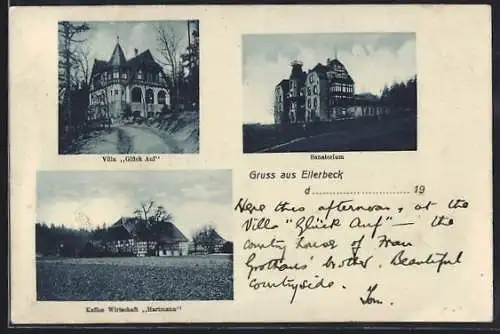 Villa „Glück Auf"
Sanatorium
Gruss aus Ellerbeck
d.............................. 19
Here this afternoon, at the
Villa "Glück Auf" — the
country house of Frau
Grothaus' brother. Beautiful
countryside.
Tom.
Kaffee Wirtschaft „Hartmann"